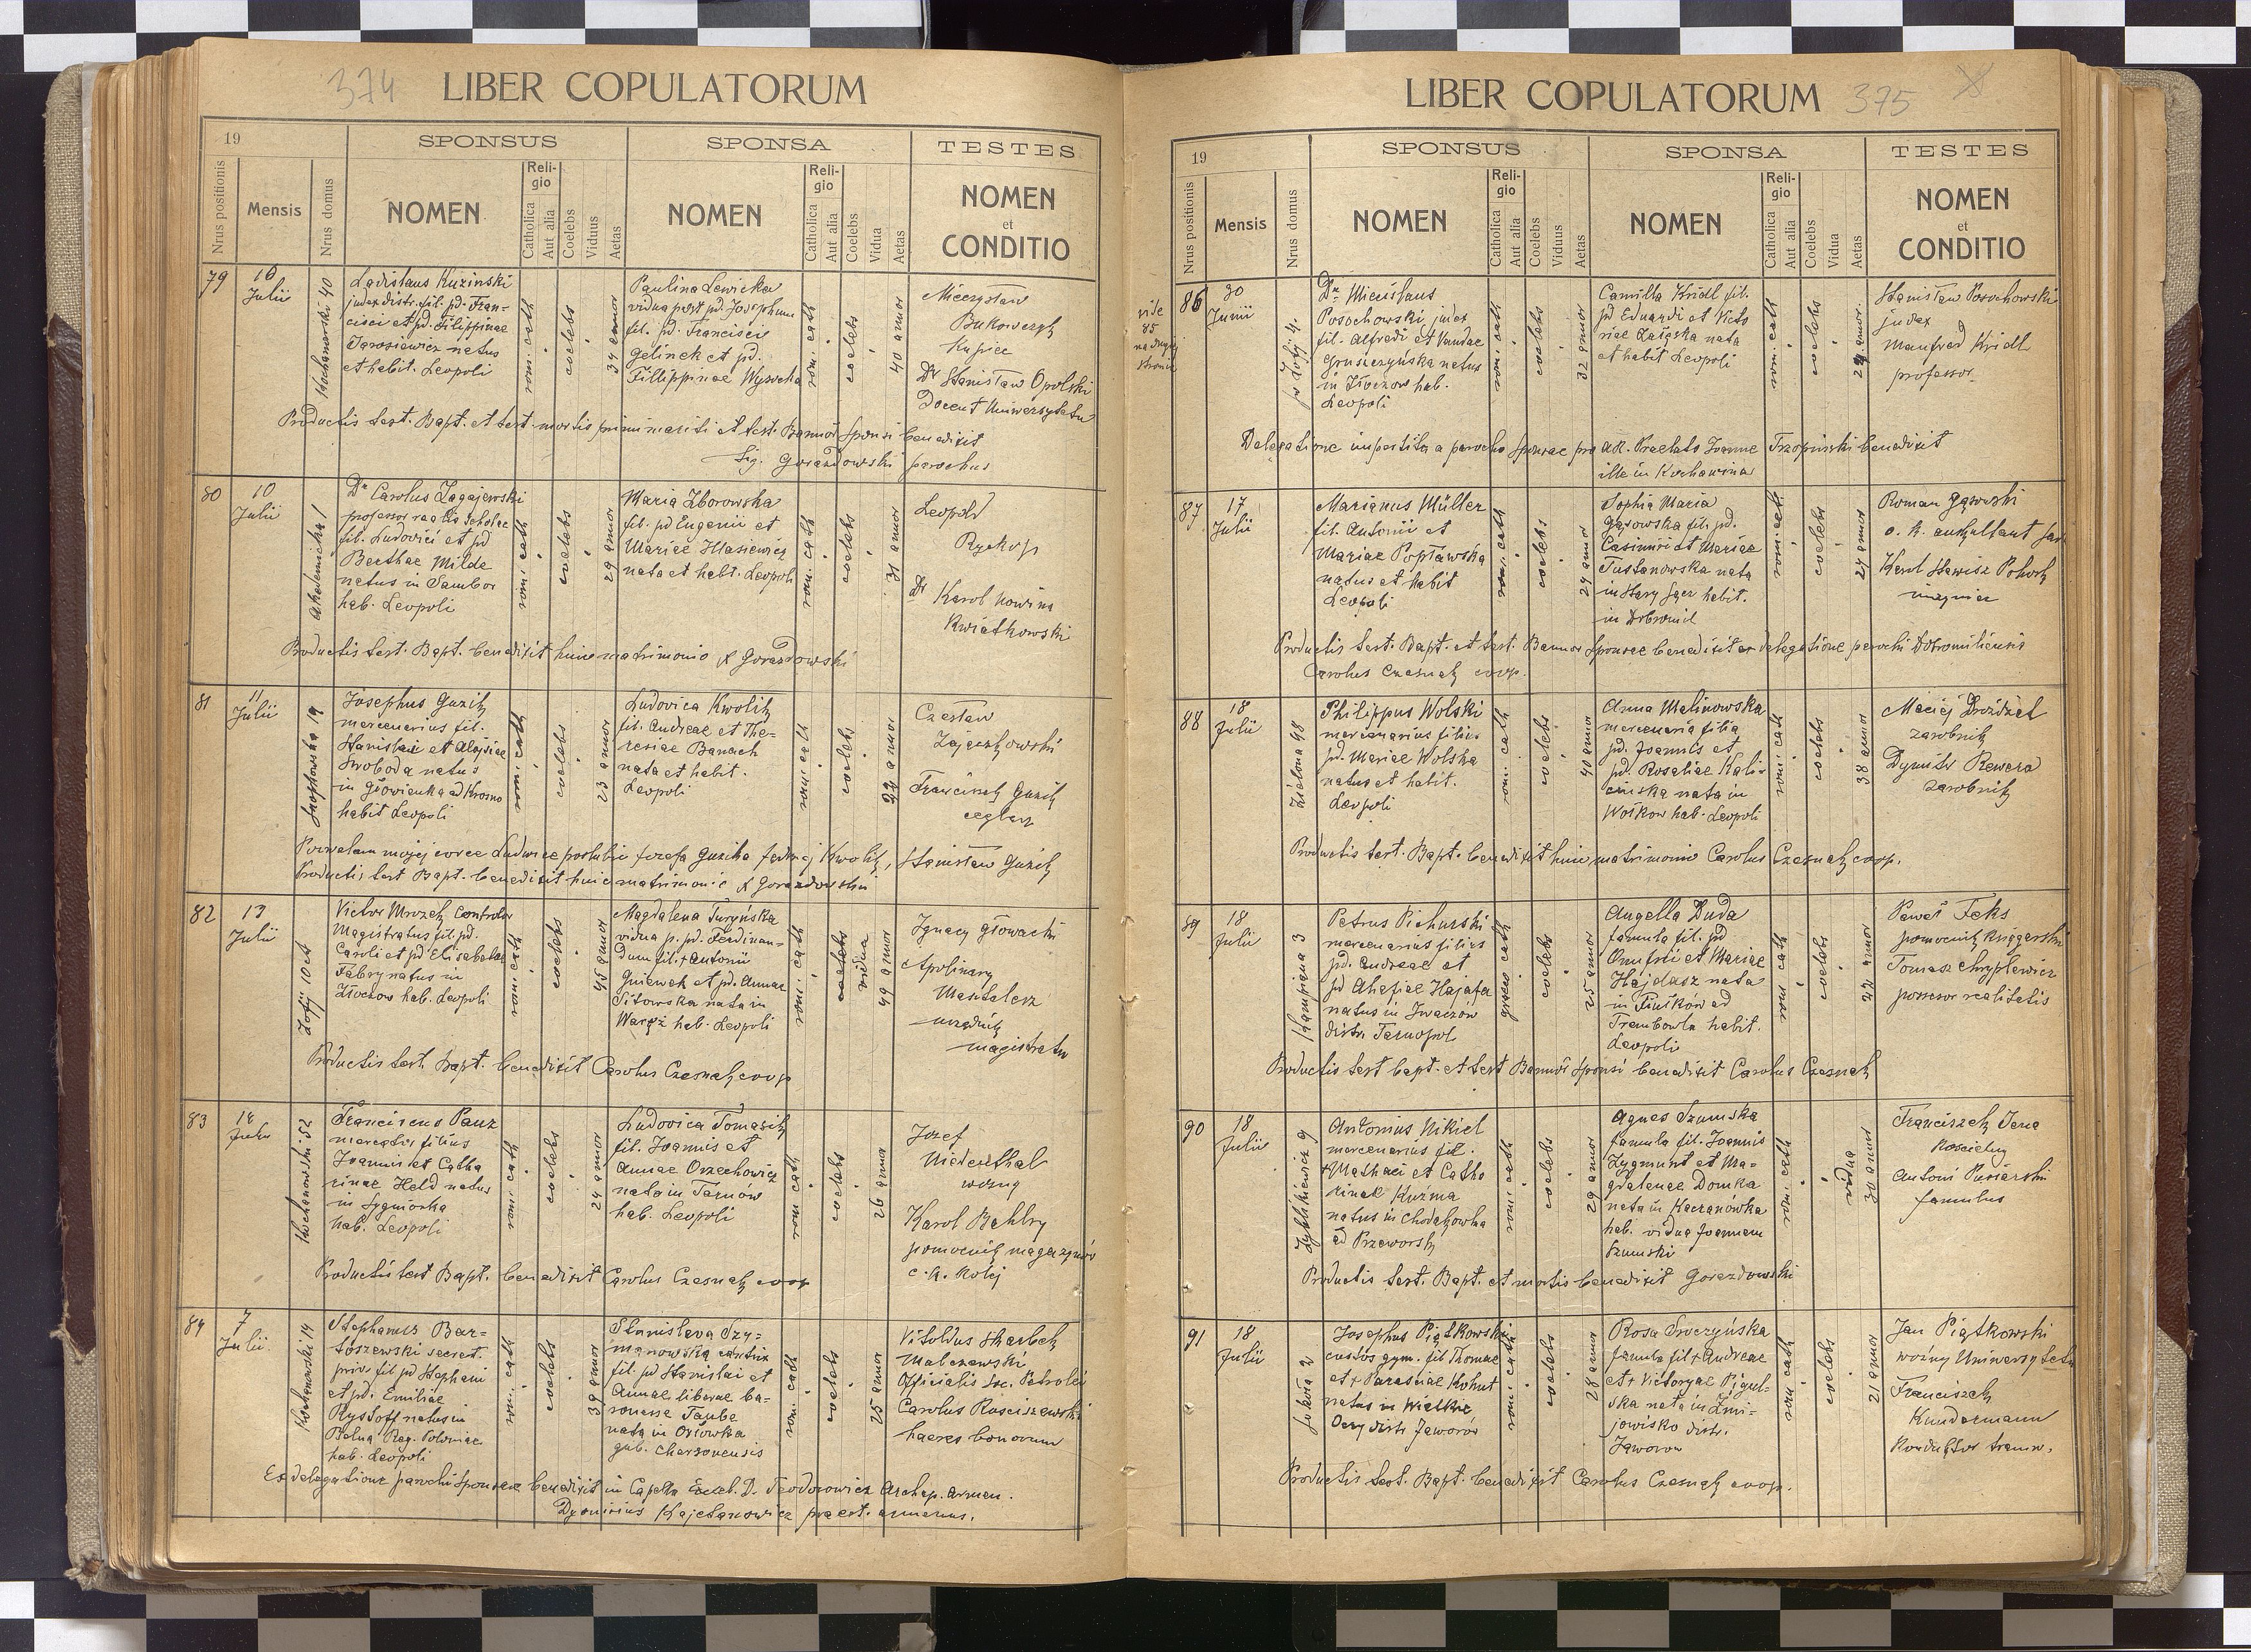 374
LIBER COPULATORUM
19
SPONSUS
SPONSA
TESTES
Nrus positionis
Mensis
Nrus domus
NOMEN
Religio
Catholica
Aut alia
Coelebs
Viduus
Aetas
NOMEN
Religio
Catholica
Aut alia
Coelebs
Vidua
Aetas
NOMEN
et
CONDITIO
79
10
Julii
Kochanowski 40
Ladislaus Kuzinski
judex distr. fil. pd. Fran-
cisci et pd. Filippinae
Jarosiewicz natus
et habit. Leopoli
rom. cath
coelebs
34 annor
Paulina Lewicka
vidua post pd. Josephum
fil. pd. Francisci
Gelinek et pd.
Fillippinae Wysocka
rom. cath
coelebs
40 annor
Mieczysław
Bukowczyk
Kupiec
Dr Stanisław Opolski
Docent Uniwersytetu
Productis test. Bapt. et test. mortis primi mariti et test. Bannor Sponsi benedixit
Sig. Gorazdowski parochus
80
10
Julii
Akademicka 1
Dr Carolus Zagajewski
professor realis scholae
fil. Ludovici et pd
Berthae Milde
natus in Sambor
hab. Leopoli
rom. cath
coelebs
29 annor
Maria Zborowska
fil. pd Eugenii et
Mariae Stasiewicz
nata et habt. Leopoli
rom. cath
coelebs
31 annor
Leopold
Rychop
Dr Karol Nowina
Kwiatkowski
Productis test. Bapt. benedixit huic matrimonio X Gorazdowski
81
11
Julii
19
Josephus Guzik
mercenarius fil.
Stanislai et Aloysiae
Swoboda natus
in Głowienka ad Krosno
habit Leopoli
rom. cath
coelebs
23 annor
Ludovica Kwolik
fil. Andreae et The-
resiae Banach
nata et habit.
Leopoli
rom. cath
coelebs
22 annor
Czesław
Zajączkowski
Franciszek Guzik
ceglarz
Pozwalam mojej corce Ludwice poslubic Jozefa Guzika Jędrzej Kwolik, Stanisław Guzik
Productis test Bapt. benedixit huic matrimonio X Gorazdowski
82
13
Julii
Zofij 10 ct
Victor Mrozek Controlor
Magistratus fil. pd.
Caroli et pd Elisabetae
Fabry natus in
Złoczow hab. Leopoli
rom. cath
coelebs
45 annor
Magdalena Turyńska
vidua p. pd. Ferdinan-
dum fil. + Antonii
Gniewek et pd. Annae
Sitowska nata in
Waręż hab. Leopoli
rom. cath
coelebs
vidua
49 annor
Ignacy Głowacki
Apolinary
Mandalerz
urzędnik
magistratu
Productis test. Bapt. benedixit Carolus Czesnak coop
83
14
Julii
Kochanowski 52
Franciscus Panz
mercator filius
Joannis et Catha
rinae Held natus
in Sygniówka
hab. Leopoli
rom. cath
coelebs
24 annor
Ludovica Tomasik
fil. Joannis et
Annae Orzechowicz
nata in Tarnów
hab. Leopoli
rom. cath
coelebs
26 annor
Jozef
Niederthal
woźny
Karol Bahlry
pomocnik magazynów
c. k. Kolej
Productis test Bapt. benedixit Carolus Czesnak coop
84
7
Julii.
Kochanowski 14
Stephanus Bar-
toszewski secret.
priv. fil pd Stephani
et pd. Emiliae
Rystoff natus in
Bełna Reg. Poloniae
hab. Leopoli
rom. cath
coelebs
39 annor
Stanislava Szy-
manowska cantrix
fil. pd Stanislai et
Annae liberae ba-
ronesse Taube
nata in Orłowka
gub. Chersonensis
rom. cath
coelebs
25 annor
Vitoldus Skarbek
Malczewski
Officialis Soc. Petrolei
Carolus Rosciszewski
haeres bonorum
Ex delegatione parochi sponsae benedixit in Capella Excel. D. Teodorowicz Archep. armen.
Dyonisius Kajetanowicz praest. armenus.
LIBER COPULATORUM
375
19
SPONSUS
SPONSA
TESTES
Nrus positionis
Mensis
Nrus domus
NOMEN
Religio
Catholica
Aut alia
Coelebs
Viduus
Aetas
NOMEN
Religio
Catholica
Aut alia
Coelebs
Vidua
Aetas
NOMEN
et
CONDITIO
vide
85
na drugiej
stronie
86
30
Junii
Zofij 4.
Dr Miecislaus
Posochowski judex
fil. Alfredi et Vandae
Gruszczyńska natus
in Złoczow hab.
Leopoli
rom. cath
coelebs
32 annor
Camilla Kridl fil.
pd Eduardi et Victo
riae Załęska nata
et habit Leopoli
rom. cath
coelebs
24 annor.
Stanisław Posochowski
judex
Manfred Kridl
professor
Delegatione impertita a parocho Sponsae pro AR. Praelato Joanne Trzopinski benedixit
ille in Kochawina
87
17
Julii
Marianus Müller
fil. Antonii et
Mariae Popławska
natus et habit
Leopoli
rom. cath
coelebs
24 annor
Sophia Maria
Gąsowska fil. pd.
Casimiri et Mariae
Tustanowska nata
in Stary Sącz habit.
in Dobromil
rom. cath
coelebs
24 annor
Roman Gąsowski
c. k. auskultant
Karol Stawisz Pohorly
Productis test. Bapt. et test. Bannor Sponsae benedixit ex delegatione parochi Dobromiliensis
Carolus Czesnak coop.
88
18
Julii
Zielona 48
Philippus Wolski
mercenarius filius
pd. Mariae Wolska
natus et habit.
Leopoli
rom. cath
coelebs
40 annor
Anna Malinowska
mercenaria filia
pd. Joannis et
pd. Rosaliae Kali-
cinska nata in
Wołkow hab. Leopoli
rom. cath
coelebs
38 annor
Maciej Drożdżel
zarobnik
Dymitr Rewera
zarobnik
Productis test. Bapt. benedixit huic matrimonio Carolus Czesnak coop.
89
18
Julii
3
Petrus Pichurski
mercenarius filius
pd. Andreae et
pd Ahafiae Hajata
natus in Iwaczów
distr. Tarnopol
graeco cath
coelebs
25 annor
Angella Duda
famula fil. pd
Onufrii et Mariae
Hajdasz nata
in Ziułków ad
Trembowla habit.
Leopoli
rom cath
coelebs
22 annor
Paweł Feks
pomocnik księgarski
Tomasz Chryplewicz
possesor realitatis
Productis test bapt. et test Bannor Sponsi benedixit Carolus Czesnak
90
18
Julii
Zyblikiewicza 9
Antonius Nikiel
mercenarius fil.
+ Mathaei et Catha
rinae Kuźma
natus in Chodakowka
ad Przeworsk
rom. cath
coelebs
29 annor
Agnes Szumska
famula fil. Joannis
Zygmunt et Ma-
gdalenae Domka
nata in Kaczanówka
hab. vidua Joannem
Szumski
rom. cath
vidua
30 annor
Franciszek Jena
Koscielny
Antoni Pusiarski
famulus
Productis test. Bapt. et mortis benedixit Gorazdowski
91
18
Julii
Sokoła 2
Josephus Piątkowski
custos gym. fil Thomae
et + Parasciae Kohut
natus in Wielkie
Oczy distr Jaworów
rom cath
coelebs
28 annor
Rosa Swczyńska
famula fil + Andreae
et + Victoryae Pigul-
ska nata in Żmi-
jowisko distr.
Jaworow
rom cath
coelebs
21 annor
Jan Piątkowski
woźny Uniwersytetu
Franciszek
Kundermann
Konduktor tramw.
Productis test. Bapt. benedixit Carolus Czesnak coop.